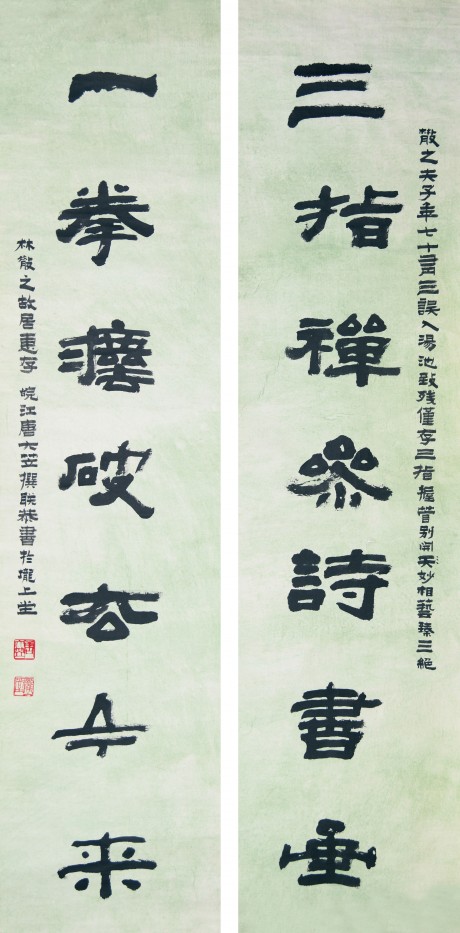 散之夫子年七十有三誤入湯池致残僅存三指握管别開天妙相藝臻三絕
三指禪參詩書画
一拳破今来
林散之故居惠存 皖江唐大笠撰联恭書於壠上